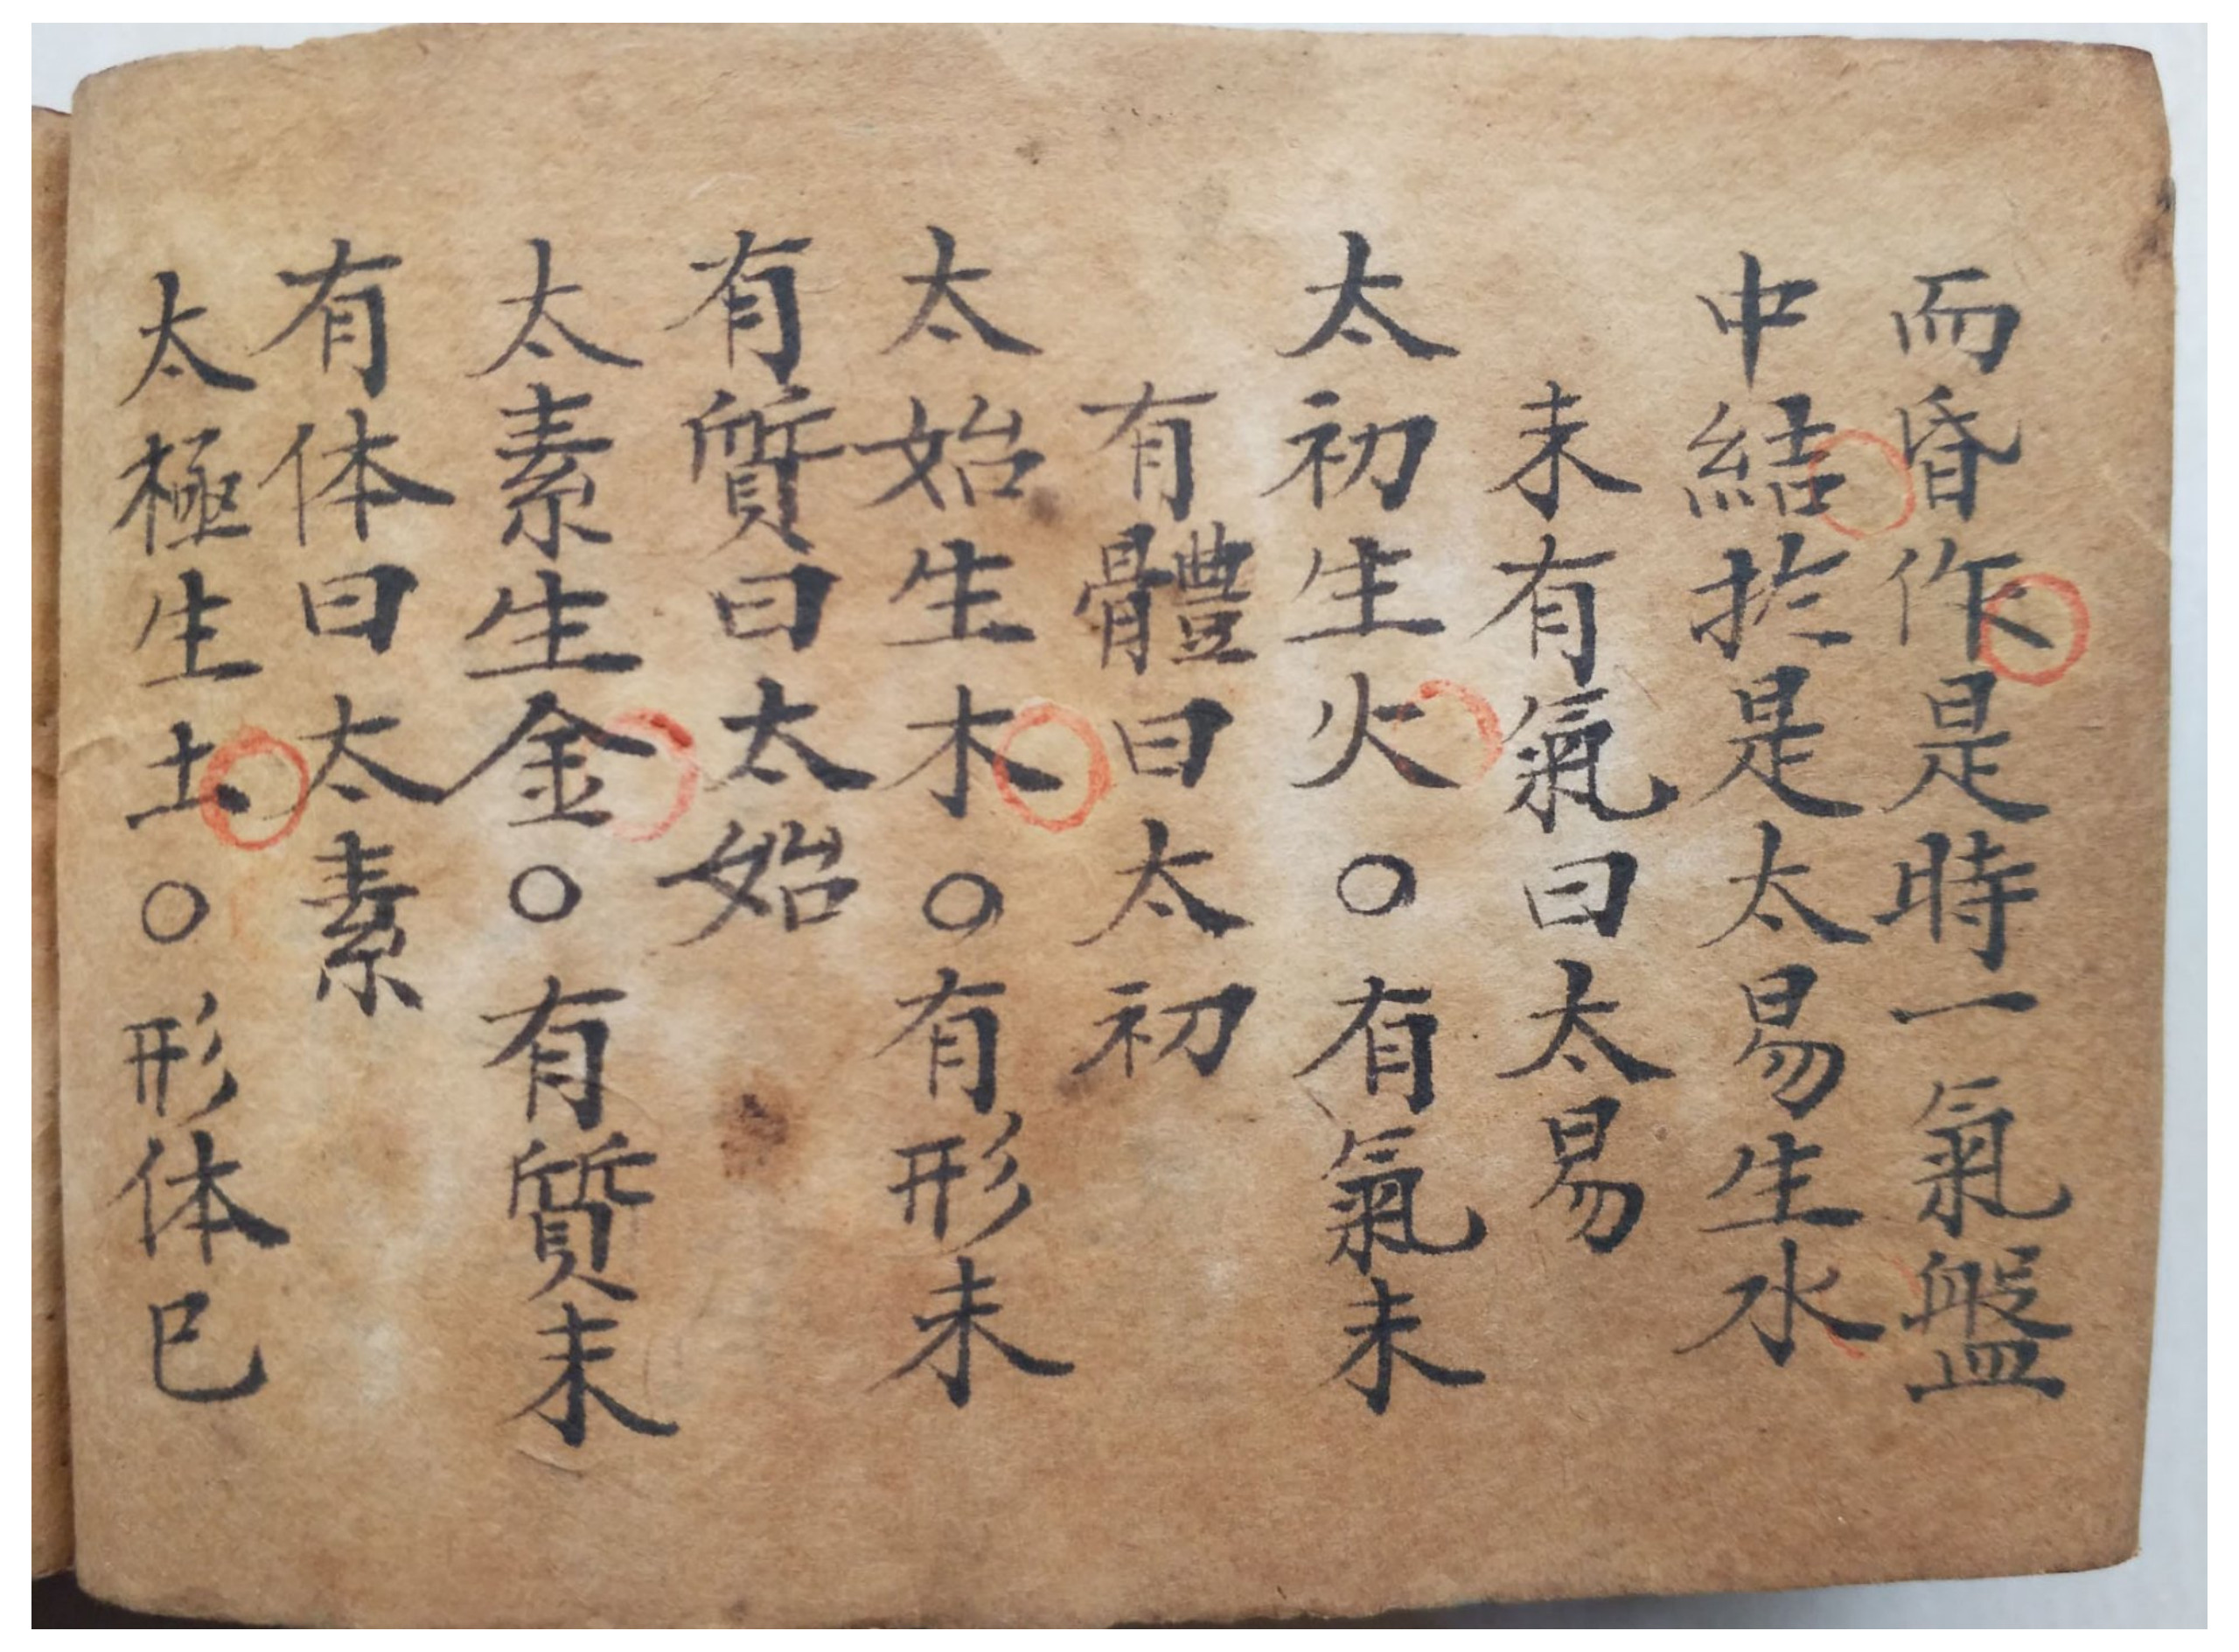 而昏作是時一氣盤
中結於是太易生水
未有氣曰太易
太初生火○有氣未
有體曰太初
太始生木○有形未
有質曰太始
太素生金○有質未
有体曰太素
太極生土○形体已